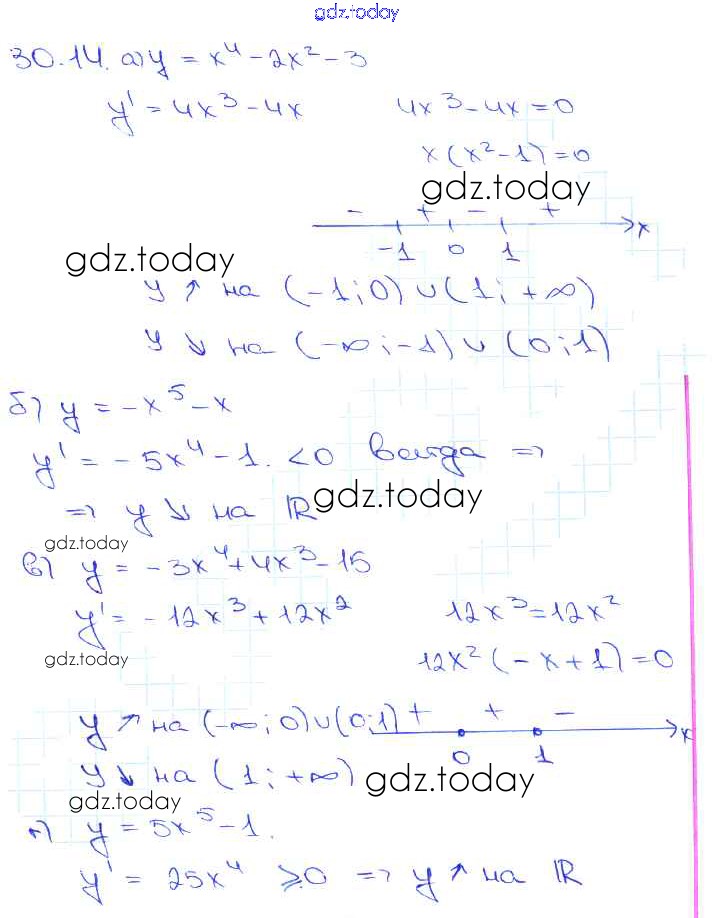 gdz.today
30.14. а) y = x⁴ - 2x² - 3
y' = 4x³ - 4x 4x³ - 4x = 0
x(x² - 1) = 0
gdz.today
- + - + x
-1 0 1
gdz.today
y ↑ на (-1; 0) ∪ (1; +∞)
y ↘ на (-∞; -1) ∪ (0; 1)
б) y = -x⁵ - x
y' = -5x⁴ - 1. < 0 всегда ⇒
gdz.today
⇒ y ↘ на ℝ
gdz.today
в) y = -3x⁴ + 4x³ - 15
y' = -12x³ + 12x² 12x³ = 12x²
gdz.today
12x²(-x + 1) = 0
y ↗ на (-∞; 0) ∪ (0; 1) + + - x
0 1
y ↓ на (1; +∞)
gdz.today
gdz.today
г) y = 5x⁵ - 1.
y' = 25x⁴ ⩾ 0 ⇒ y ↑ на ℝ